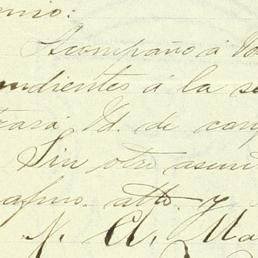 mio:
Acompaño á Vd
ndientes á la se
trará Vd. de con
Sin otro asunt
afmo. atto. y